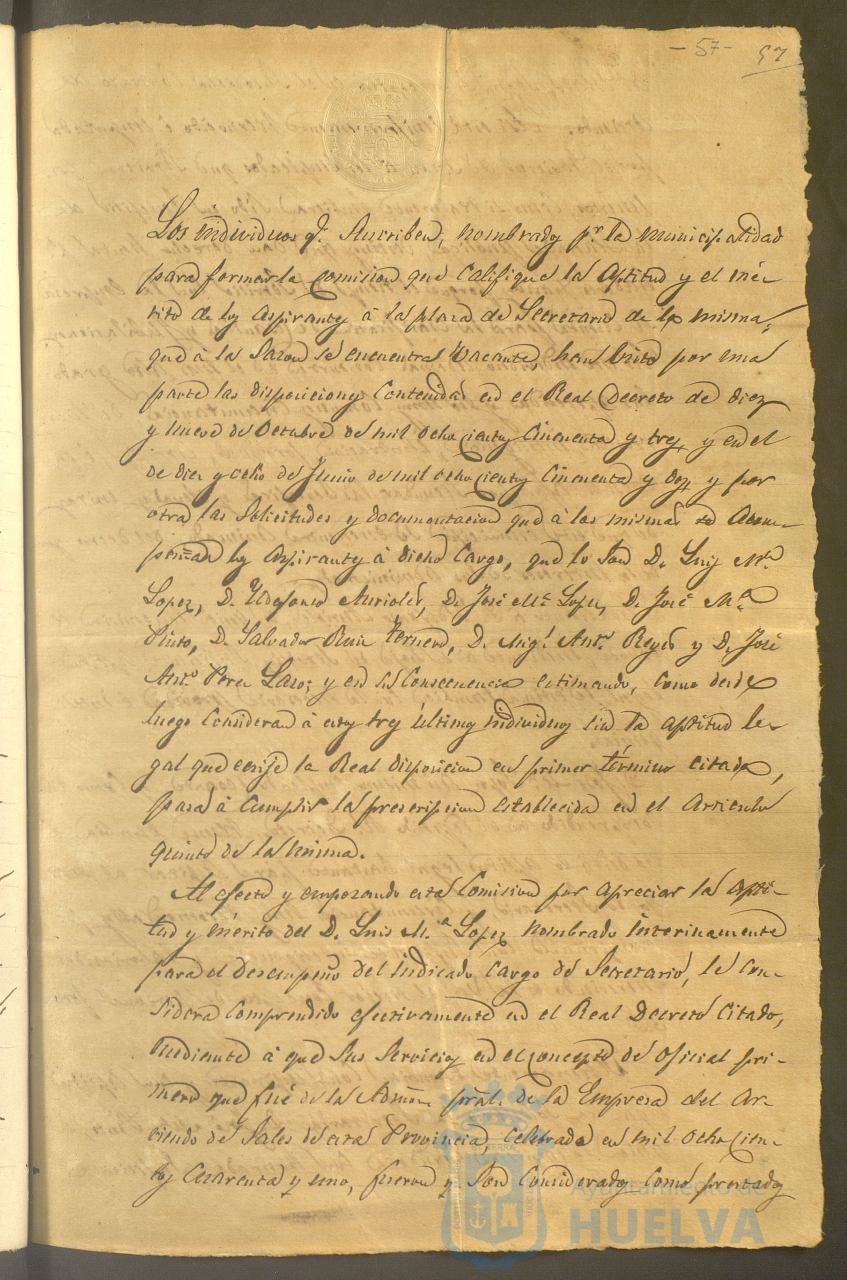 - 57 - 57
Los individuos q.e suscriben, nombrados p.r la municipalidad
para formar la comision que califique la aptitud y el mé-
rito de los aspirantes á la plaza de Secretario de la misma,
que á la sazon se encuentra vacante, han visto por una
parte las disposiciones contenidas en el Real Decreto de diez
y nueve de Octubre de mil ochocientos cincuenta y tres, y en el
de diez y ocho de Junio de mil ochocientos cincuenta y dos, y por
otra las solicitudes y documentacion que á las mismas se acom-
pañan los aspirantes á dicho cargo, que lo son D. Luis M.a
Lopez, D. Ildefonso Aurioles, D. José M.a Lopez, D. José M.a
Pinto, D. Salvador Ruiz D. Mig.l Ant.o Reyes y D. José
Ant.o Perez y en su consecuencia estimando, como desde
luego consideran á estos tres últimos individuos sin la aptitud le-
gal que exije la Real disposicion en primer término citada,
pasa á cumplir la prescripcion establecida en el articulo
quinto de la misma.
Al efecto y empezando esta Comision por apreciar la apti-
tud y mérito del D. Luis M.a Lopez nombrado interinamente
para el desempeño del indicado cargo de Secretario, le con-
sidera comprendido efectivamente en el Real Decreto citado,
mediante á que sus servicios en el concepto de oficial pri-
mero que fué de la Admon. pral. de la Empresa del ar-
riendo de Sales de esta Provincia, celebrada en mil ochocien-
tos cuarenta y uno, fueron y son considerados como prestados
Ayuntamiento de
HUELVA